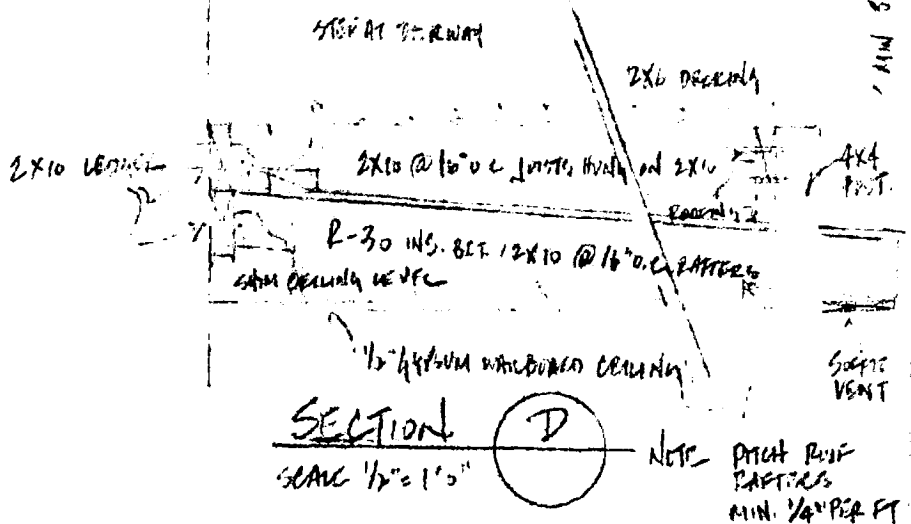 STEP AT DOORWAY
MIN
2X6 DECKING
2X10 LEDGER
2X10 @ 16" O.C. JOISTS HUNG ON 2X10
4X4
POST
ROOFING
R-30 INS. BET. 2X10 @ 16" O.C. RAFTERS
SHIM CEILING LEVEL
1/2" GYPSUM WALLBOARD CEILING
SOFFIT
VENT
SECTION D
SCALE 1/2" = 1'0"
NOTE PITCH ROOF
RAFTERS
MIN. 1/4" PER FT